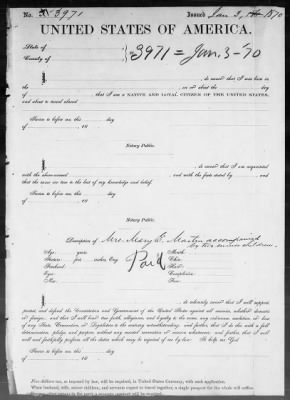 No. 3971 Issued Jan 3, 1870
UNITED STATES OF AMERICA.
State of
County of
3971 = Jan. 3 - 70
I, do swear that I was born in
on or about the day
of that I am a NATIVE AND LOYAL CITIZEN OF THE UNITED STATES,
and about to travel abroad
Sworn to before me, this day
of , 18
Notary Public.
I, do swear that I am acquainted
with the above-named and with the facts stated by and
that the same are true to the best of my knowledge and belief.
Sworn to before me, this day
of , 18
Notary Public.
Description of Mrs. Mary E. Martin accompanied
by two minor children.
Age: years Mouth:
Stature: feet inches, Eng. Chin:
Forehead: Hair:
Eyes: Complexion:
Nose: Face:
Paid
I, do solemnly swear that I will support,
protect, and defend the Constitution and Government of the United States against all enemies, whether domestic
or foreign; and that I will bear true faith, allegiance, and loyalty to the same, any ordinance, resolution, or law
of any State, Convention, or Legislature to the contrary notwithstanding; and further, that I do this with a full
determination, pledge, and purpose, without any mental reservation or evasion whatsoever; and further, that I will
well and faithfully perform all the duties which may be required of me by law: So help me God.
Sworn to before me, this day
of , 18
Five dollars tax, as imposed by law, will be required, in United States Currency, with each application.
When husband, wife, minor children, and servants expect to travel together, a single passport for the whole will suffice.